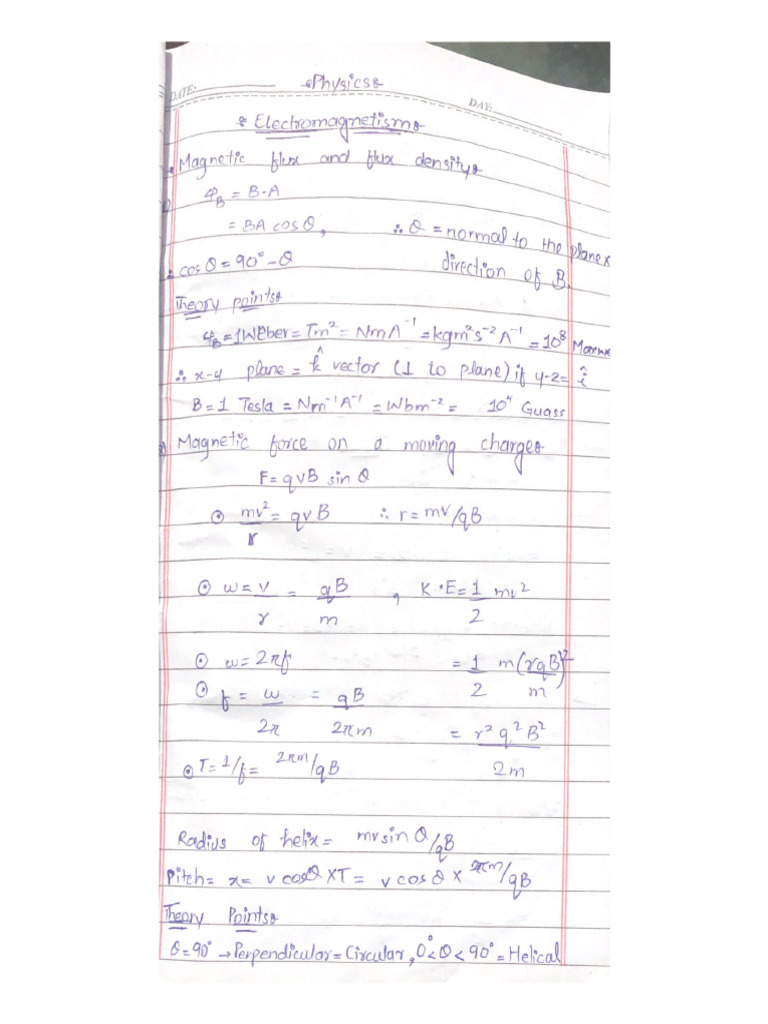 Physics
DATE:
DAY:
Electromagnetism
Magnetic flux and flux density
1) φB = B·A
= BA cos θ, ∴ θ = normal to the plane x direction of B.
∴ cos θ = 90° - θ
Theory points
φB = 1 Weber = Tm² = NmA⁻¹ = kgm²s⁻²A⁻¹ = 10⁸ Maxwe
∴ x-y plane = k̂ vector (⊥ to plane) if y-z = î
B = 1 Tesla = Nm⁻¹A⁻¹ = Wbm⁻² = 10⁴ Guass
Magnetic force on a moving charge
F = qvB sin θ
⊙ mv²/r = qvB ∴ r = mv/qB
⊙ ω = v/r = qB/m , K.E = 1/2 mv²
⊙ ω = 2πf = 1/2 m(rqB/m)²
⊙ f = ω/2π = qB/2πm = r²q²B²/2m
⊙ T = 1/f = 2πm/qB
Radius of helix = mv sin θ/qB
Pitch = x = v cos θ × T = v cos θ × 2πm/qB
Theory Points
θ = 90° → Perpendicular = Circular, 0° < θ < 90° = Helical